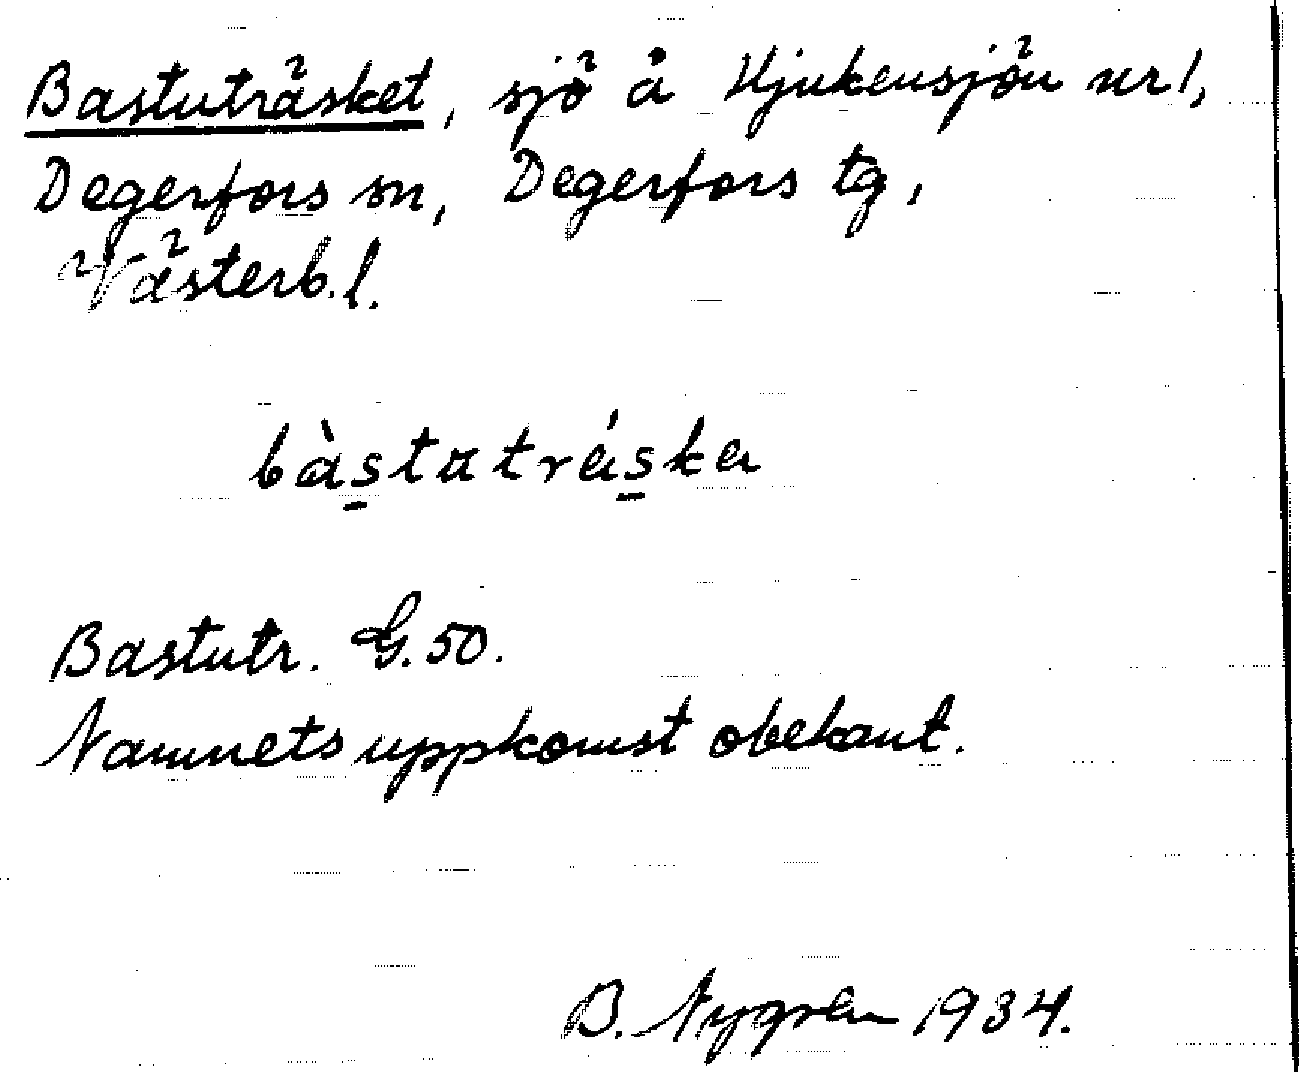 Bastuträsket, sjö å Hjukensjön nr 1,
Degerfors sn, Degerfors tg,
Västerb.l.
bàstatráska
Bastutr. G. 50.
Namnets uppkomst obekant.
B. Nygren 1934.